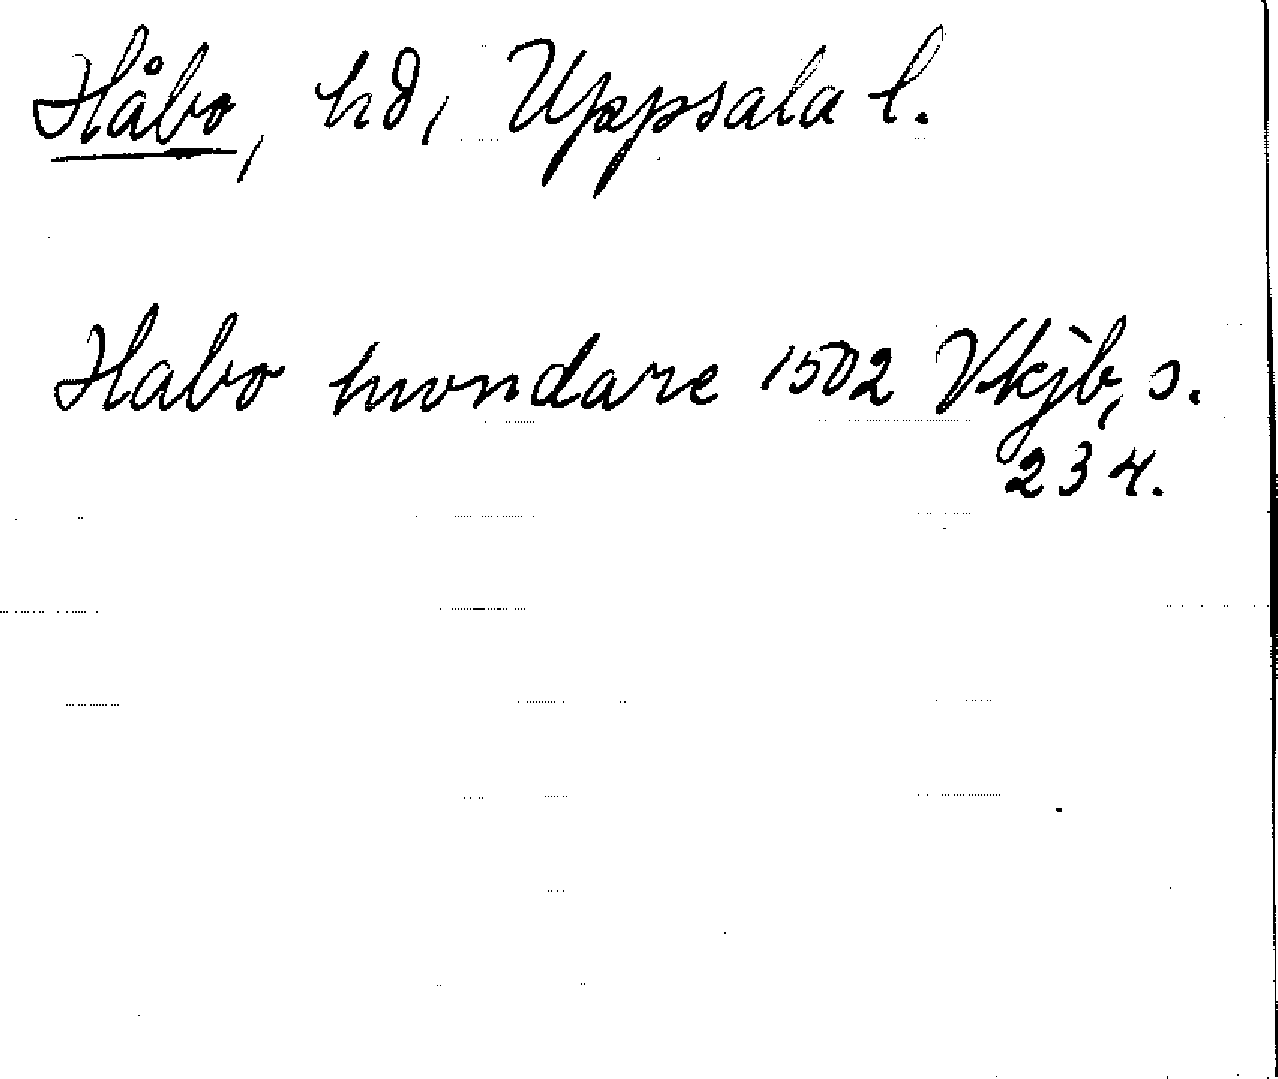 Håbo, hd, Uppsala l.
Habo hwndare 1502 Vkjb, s.
234.